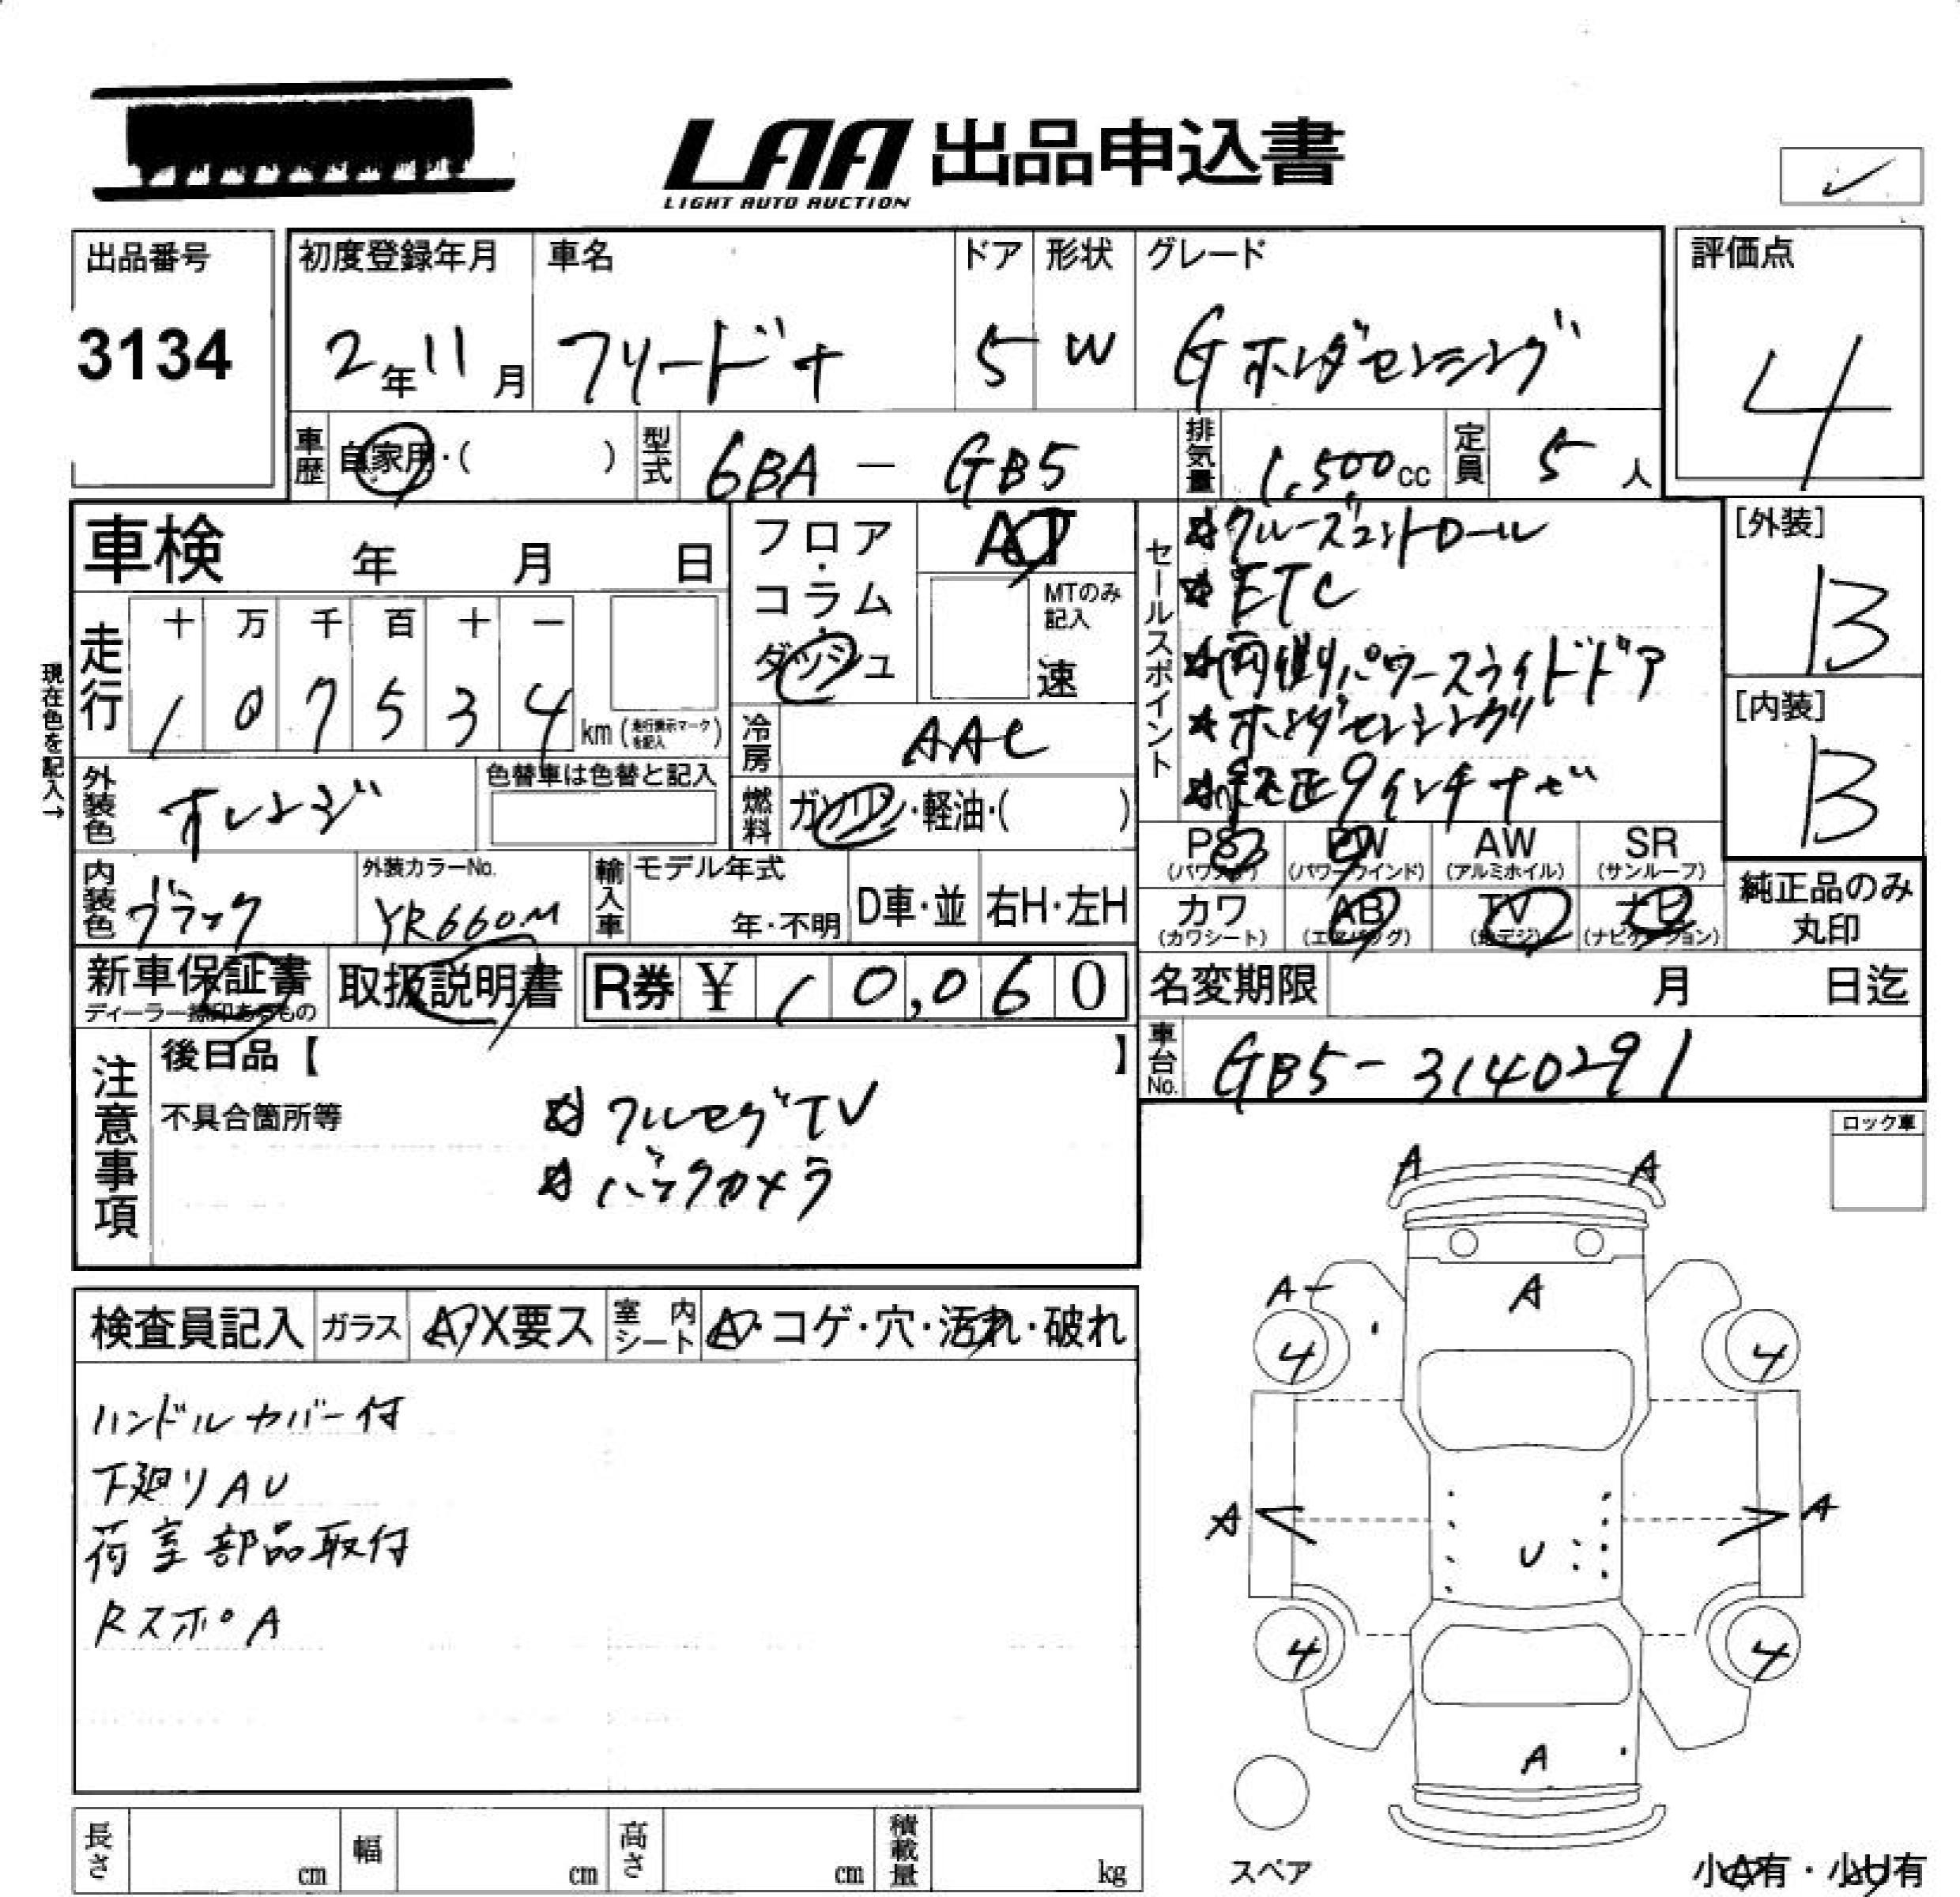 LAA 出品申込書
LIGHT AUTO AUCTION
出品番号
3134
初度登録年月
2年11月
車名
フリード+
ドア
5
形状
W
グレード
Gホンダセンシング
評価点
4
車歴 自家用・( )
型式 6BA - GB5
排気量 1,500cc
定員 5人
車検 年 月 日
フロア・コラム・ダッシュ
AT
MTのみ記入
速
セールスポイント
☆クルーズコントロール
☆ETC
☆両側パワースライドドア
☆ホンダセンシング
☆純正9インチナビ
[外装]
B
[内装]
B
現在色を記入→
走行
十 万 千 百 十 一
1 0 7 5 3 4 km (走行表示マークを記入)
冷房 AAC
外装色 オレンジ
色替車は色替と記入
燃料 ガソリン・軽油・( )
PS
(パワステ)
PW
(パワーウインド)
AW
(アルミホイル)
SR
(サンルーフ)
カワ
(カワシート)
AB
(エアバッグ)
TV
(地デジ)
ナビ
(ナビゲーション)
純正品のみ丸印
内装色 ブラック
外装カラーNo.
YR660M
輸入車
モデル年式
年・不明
D車・並
右H・左H
新車保証書
ディーラー捺印あるもの
取扱説明書
R券 ¥ 10,060
名変期限 月 日迄
車台No. GB5-3140291
注意事項
後日品【 】
不具合箇所等
☆フルセグTV
☆バックカメラ
ロック車
検査員記入
ガラス A・X要ス
室内シート A・コゲ・穴・汚れ・破れ
ハンドルカバー付
下廻りAU
荷室部品取付
RスポA
A A
A- A
4 4
A A
U
4 4
A
スペア
小A有・小U有
長さ cm
幅 cm
高さ cm
積載量 kg